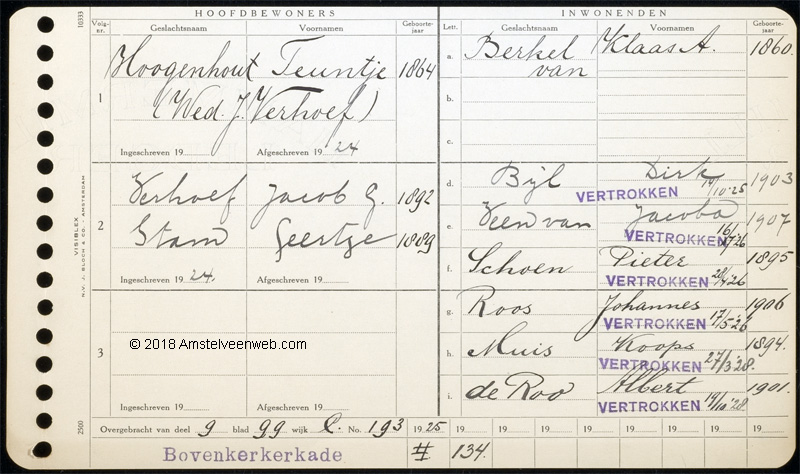 HOOFDBEWONERS
Volg-nr. Geslachtsnaam Voornamen Geboorte-jaar
1 Hoogenhout Teuntje 1864
(Wed. J. Verhoef)
Ingeschreven 19 Afgeschreven 19 24
2 Verhoef Jacob G. 1892
Stam Geertje 1889
Ingeschreven 19 24. Afgeschreven 19
3
Ingeschreven 19 Afgeschreven 19
INWONENDEN
Lettr. Geslachtsnaam Voornamen Geboorte-jaar
a. Berkel van Klaas A. 1860.
b.
c.
d. Bijl Dirk 1903
VERTROKKEN 10-25
e. Veen van Jacoba 1907
VERTROKKEN 16/ 26
f. Schoen Pieter 1895
VERTROKKEN 26
g. Roos Johannes 1906
VERTROKKEN 17/5'26
h. Muis Koops 1894.
VERTROKKEN 27/3'28.
i. de Roo Albert 1901.
VERTROKKEN 19/10'28.
Overgebracht van deel 9 blad 99 wijk C. No. 193 1925 19 19 19 19 19 19 19 19
Bovenkerkerkade # 134.
10333
VISIBLEX
N.V. J. BLOCH & CO. - AMSTERDAM
2500
© 2018 Amstelveenweb.com